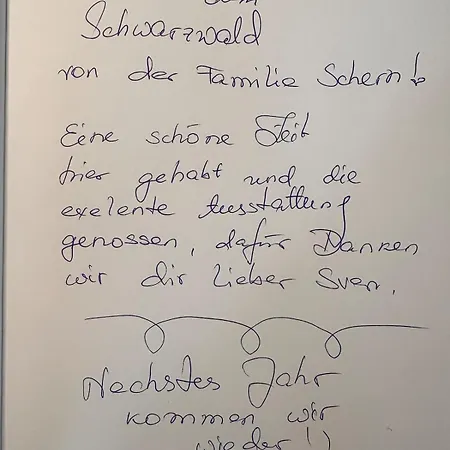 Schwarzwald
von der Familie Schern!
Eine schöne Zeit
hier gehabt und die
exelente Ausstattung
genossen, dafür Danken
wir dir lieber Sven.
Nechstes Jahr
kommen wir
wieder!)